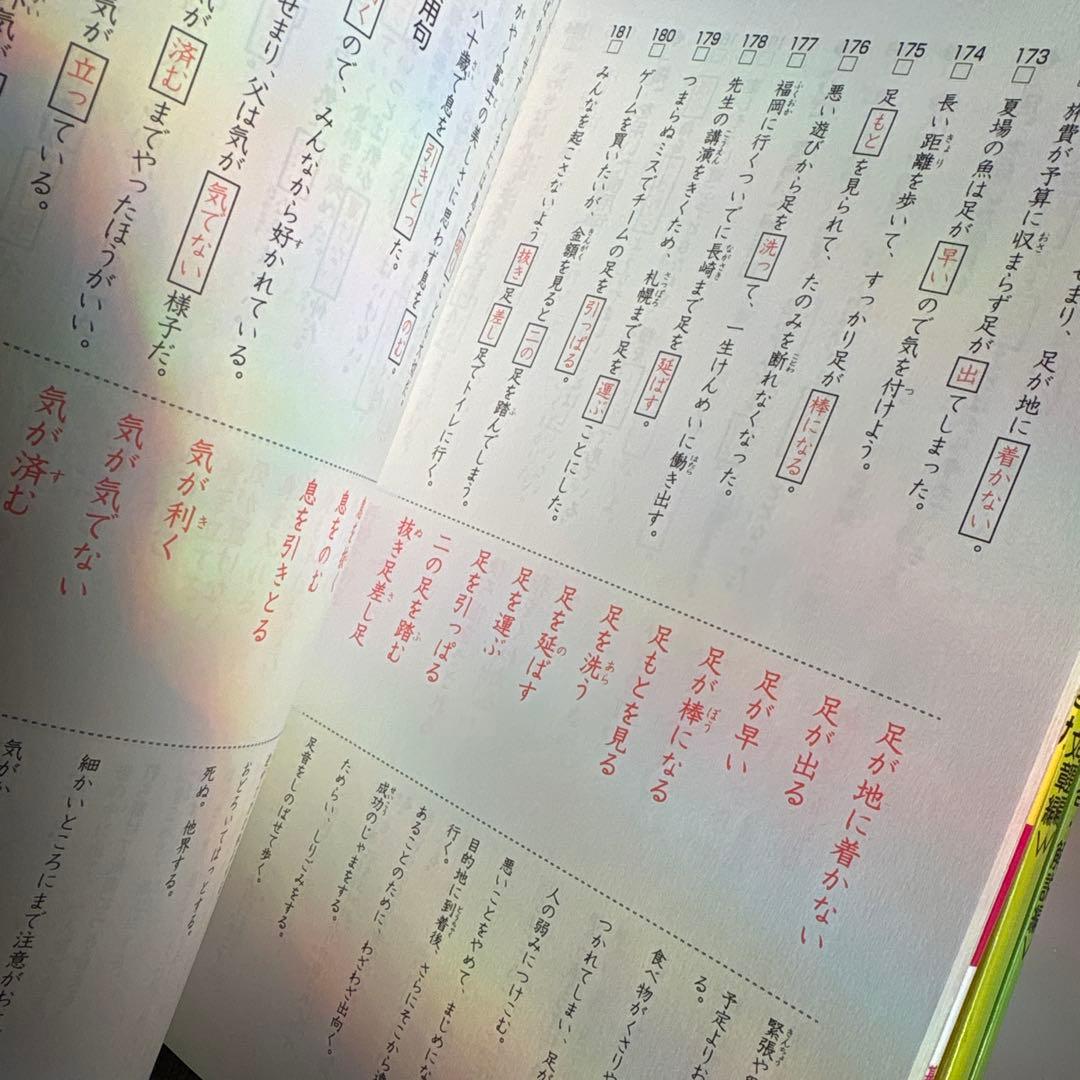 せまり、足が地に着かない。
旅費が予算に収まらず足が出てしまった。
173 □ 夏場の魚は足が早いので気を付けよう。
174 □ 長い距離を歩いて、すっかり足が棒になる。
175 □ 足もとを見られて、たのみを断れなくなった。
176 □ 悪い遊びから足を洗って、一生けんめいに働き出す。
177 □ 福岡に行くついでに長崎まで足を延ばす。
178 □ 先生の講演をきくため、札幌まで足を運ぶことにした。
179 □ つまらぬミスでチームの足を引っぱる。
180 □ ゲームを買いたいが、金額を見ると二の足を踏んでしまう。
181 □ みんなを起こさないよう抜き足差し足でトイレに行く。
足が地に着かない
足が出る
足が早い
足が棒になる
足もとを見る
足を洗う
足を延ばす
足を運ぶ
足を引っぱる
二の足を踏む
抜き足差し足
緊張や
予定よりお
る。
食べ物がくさりや
つかれてしまい、足が
人の弱みにつけこむ。
悪いことをやめて、まじめにな
目的地に到着後、さらにそこから遠
行く。
あることのために、わざわざ出向く。
成功のじゃまをする。
ためらい、しりごみをする。
足音をしのばせて歩く。
がやく富士の美しさに思わず息をのむ。
八十歳で息を引きとった。
用句
ので、みんなから好かれている。
せまり、父は気が気でない様子だ。
が済むまでやったほうがいい。
気が立っている。
息をのむ
息を引きとる
気が利く
気が気でない
気が済む
おどろいてはっとする。
死ぬ。他界する。
細かいところにまで注意が
気がか